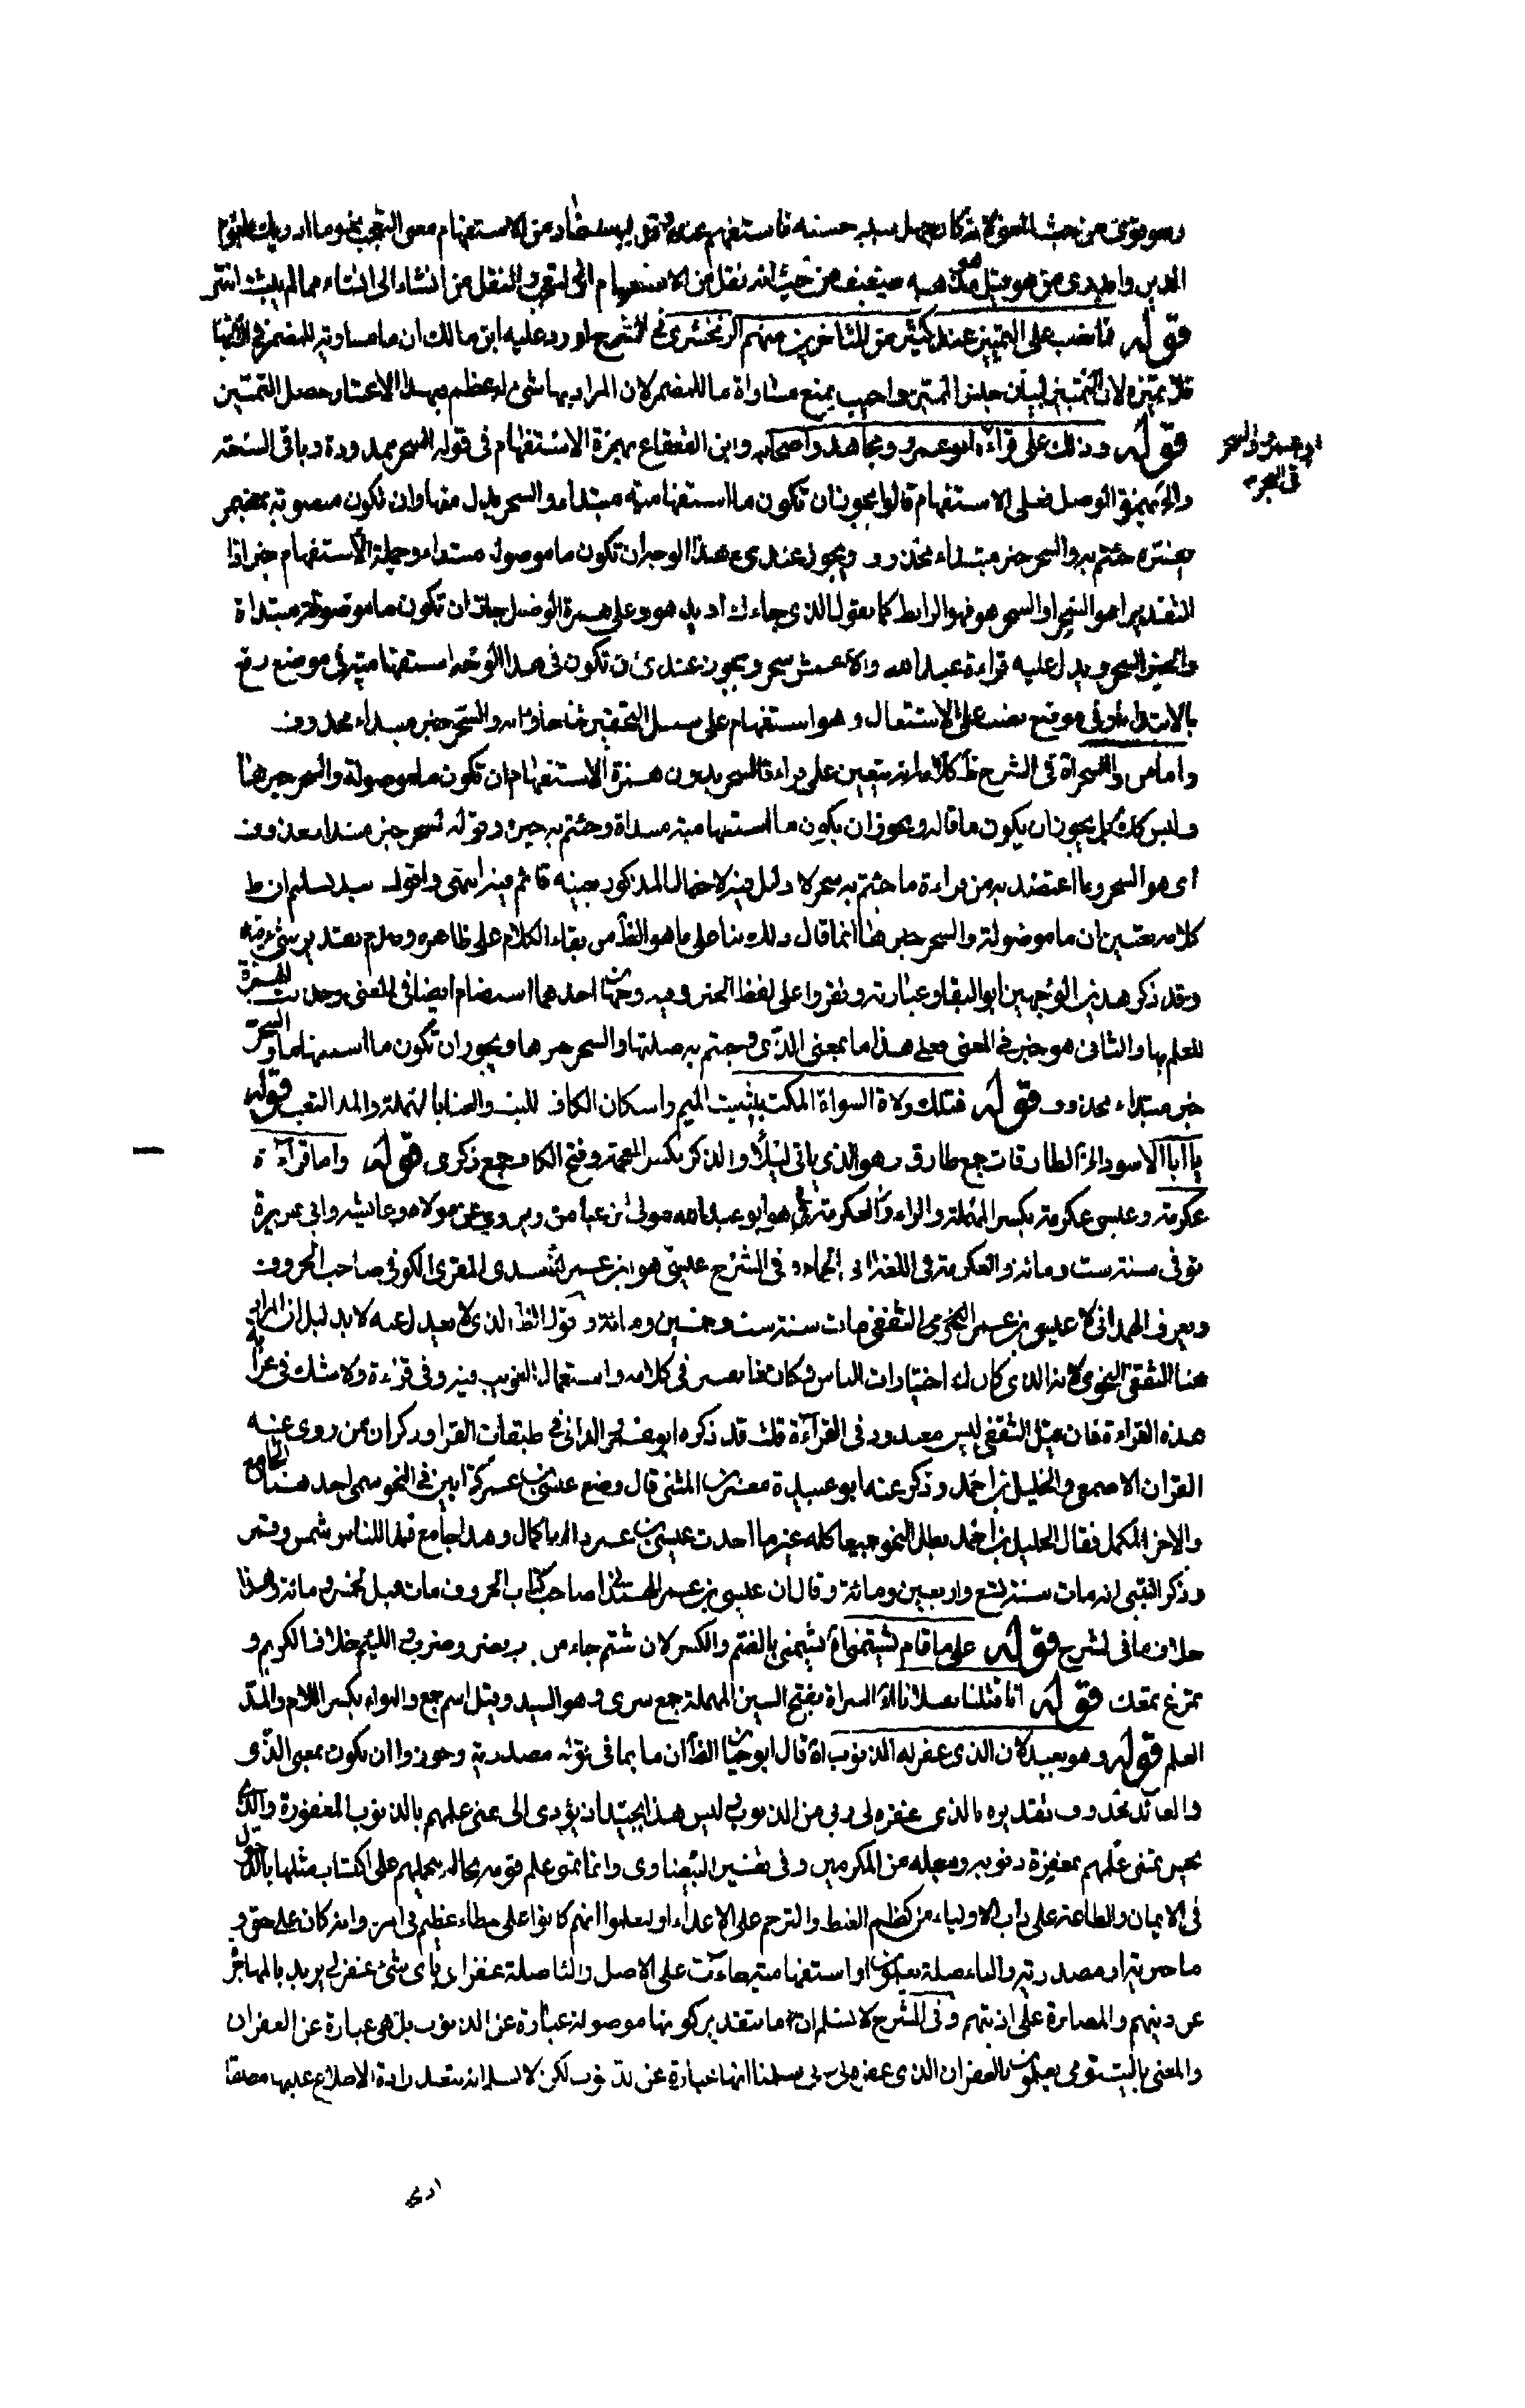 وهو قوى من حيث المعنى لأنه كان جهل سبب حسنه فاستفهم عنه وقد يستفاد من الاستفهام معنى التعجب نحو وما ادريك ما يوم
الدين واما من هو قيل ضعيف من حيث انه نقل من الاستفهام الى التعجب والنقل من انشاء الى انشاء مما لم يثبت انتهى
قوله فانتصب على التمييز عند كثير من المتأخرين منهم الزمخشرى فى الشرح اورد عليه ابن مالك ان ما مساوية للمضمر فى الابهام
فلا تميزه لان التمييز لبيان جنس المميز واجيب بمنع مساواة ما للمضمر لان المراد بها شىء عظيم وبهذا الاعتبار حصل التمييز
قوله وذلك على قراءة ابو عمرو ومجاهد واصحابه وابن القعقاع بهمزة الاستفهام فى قوله السحر ممدودة وباقى السبعة
ابى عمرو السحر
والخ بهمزة الوصل فعلى الاستفهام قالوا يجوز ان تكون ما استفهامية مبتداء والسحر بدل منها وان تكون منصوبة بمضمر
يفسره جئتم به والسحر خبر مبتداء محذوف ويجوز عندى على هذا الوجه ان تكون ما موصولة مبتداء وجملة الاستفهام خبر اذا
التقدير اهو السحر او السحر هو فهو الرابط كما تقول الذى جاءك ازيد هو وعلى همزة الوصل جاز ان تكون ما موصولة مبتداة
والخبر السحر ويدل عليه قراءة عبد الله والاعمش سحر ويجوز عندى ان تكون فى هذا الوجه استفهامية فى موضع رفع
بالابتداء او فى موضع نصب على الاشتغال وهو استفهام على سبيل التحقير لما جاؤا به والسحر خبر مبتداء محذوف
فى الشرح ظ كلامه انه يتعين على قراءة السحر بدون همزة الاستفهام ان تكون ما موصولة والسحر خبرها
وليس كذلك بل يجوز ان يكون ما قاله ويجوز ان يكون ما استفهامية مبتداة وجئتم به خبره وقوله السحر خبر مبتداء محذوف
اى هو السحر وما اعتضد به من قراءة ما جئتم به سحر لا دليل فيه لاحتمال المذكور بعينه قائم فيه انتهى واقول بعد تسليم ان ظ
كلامه تعيين ان ما موصولة والسحر خبرها انما قال ذلك بناء على ما هو الظ من بقاء الكلام على ظاهره وعدم تقدير شىء فيه
وقد ذكر هذين الوجهين ابو البقاء وعبارته ويقروا على لفظ الخبر وفيه وجهان احدهما استفهام ايضا فى المعنى وحذفت الهمزة
للعلم بها والثانى هو خبر فى المعنى فعلى هذا ما بمعنى الذى وجئتم به صلتها والسحر خبرها ويجوز ان تكون ما استفهاما والسحر
خبر مبتداء محذوف قوله فتلك ولاة السواة المكث بتثليث الميم واسكان الكاف اللبث والعناء بالمهملة والمد التعب قوله
يا ابا الاسود الخ الطارقات جمع طارق وهو الذى ياتى ليلا والذكر بكسر المعجمة وفتح الكاف جمع ذكرى قوله واما قراءة
عكرمة وعيسى عكرمة بكسر المهملة والراء هو ابو عبد الله مولى ابن عباس ويروى عن مولاه وعائشة وابى هريرة
توفى سنة ست ومائة والعكرمة فى اللغة الحمامة وفى الشرح عيسى هو ابن عمر الاسدى المقرى الكوفى صاحب الحروف
ويعرف الهمدانى لا عيسى بن عمر النحوى الثقفى مات سنة ست وخمسين ومائة واقول الظ الذى لا يعدل عنه لا بد لبل ان المراد
هنا الثقفى النحوى لانه الذى كان له اختيارات الناس وكان فى كلامه واستعمال الغريب فيه وفى قراءة ولا شك فى عزابة
هذه القراءة فان قيل الثقفى ليس معدود فى القراءة قلت قد ذكره ابو عمرو الدانى فى طبقات القرا وذكر ان ممن روى عنه
القران الاصمعى والخليل بن احمد وذكر عنه ابو عبيدة معمر بن المثنى قال وضع عيسى بن عمر كتابين فى النحو سمى احدهما الجامع
والاخر المكمل فقال الخليل بن احمد بطل النحو جميعا كله غير ما احدث عيسى بن عمر ذاك اكمال وهذا جامع فهما للناس شمس وقمر
وذكر القتبى انه مات سنة تسع واربعين ومائة وقال ان عيسى بن عمر الهمدانى صاحب كتاب الحروف مات قبل خمس ومائة وهذا
خلاف ما فى الشرح قوله على ما قام يشتمنى لئيم اة يشتمنى بالضم والكسر لان شتم جاء من باب نصر وضرب اللئيم خلاف الكريم و
تمرغ تمعك قوله انا قتلنا بقتلانا الخ السراة بفتح السين المهملة جمع سرى وهو السيد وقيل اسم جمع واللواء بكسر اللام والمد
العلم قوله وهو بعيد لان الذى غفر له الذنوب اة قال ابو حيان الظ ان ما بما فى قوله مصدرية وجوزوا ان تكون بمعنى الذى
والعائد محذوف تقديره بالذى غفره لى ربى من الذنوب وليس هذا بجيد اذ يؤدى الى تمنى علمهم بالذنوب المغفورة والذى
يحسن تمنى علمهم بمغفرة ذنوبه وجعله من المكرمين وفى تفسير البيضاوى وانما تمنى علم قومه بحاله ليحملهم على اكتساب مثلها بالدخول
فى الايمان والطاعة على داب الاولياء من كظم الغيظ والترحم على الاعداء او ليعلموا انهم كانوا على خطاء عظيم فى امره وانه كان على حق و
ما خبرية او مصدرية والباء صلة يعلمون او استفهامية جاءت على الاصل والباء صلة غفر اى باى شىء غفر لى يريد به المهاجرة
عن دينهم والمصابرة على اذيتهم وفى الشرح لا نسلم ان ما بتقدير كونها موصولة عبارة عن الذنوب بل هى عبارة عن الغفران
والمعنى يا ليت قومى يعلمون بالغفران الذى غفره لى ربى سلمنا انها عبارة عن الذنوب لكن لا نسلم انه يقصد ارادة الاطلاع عليها مطلقا